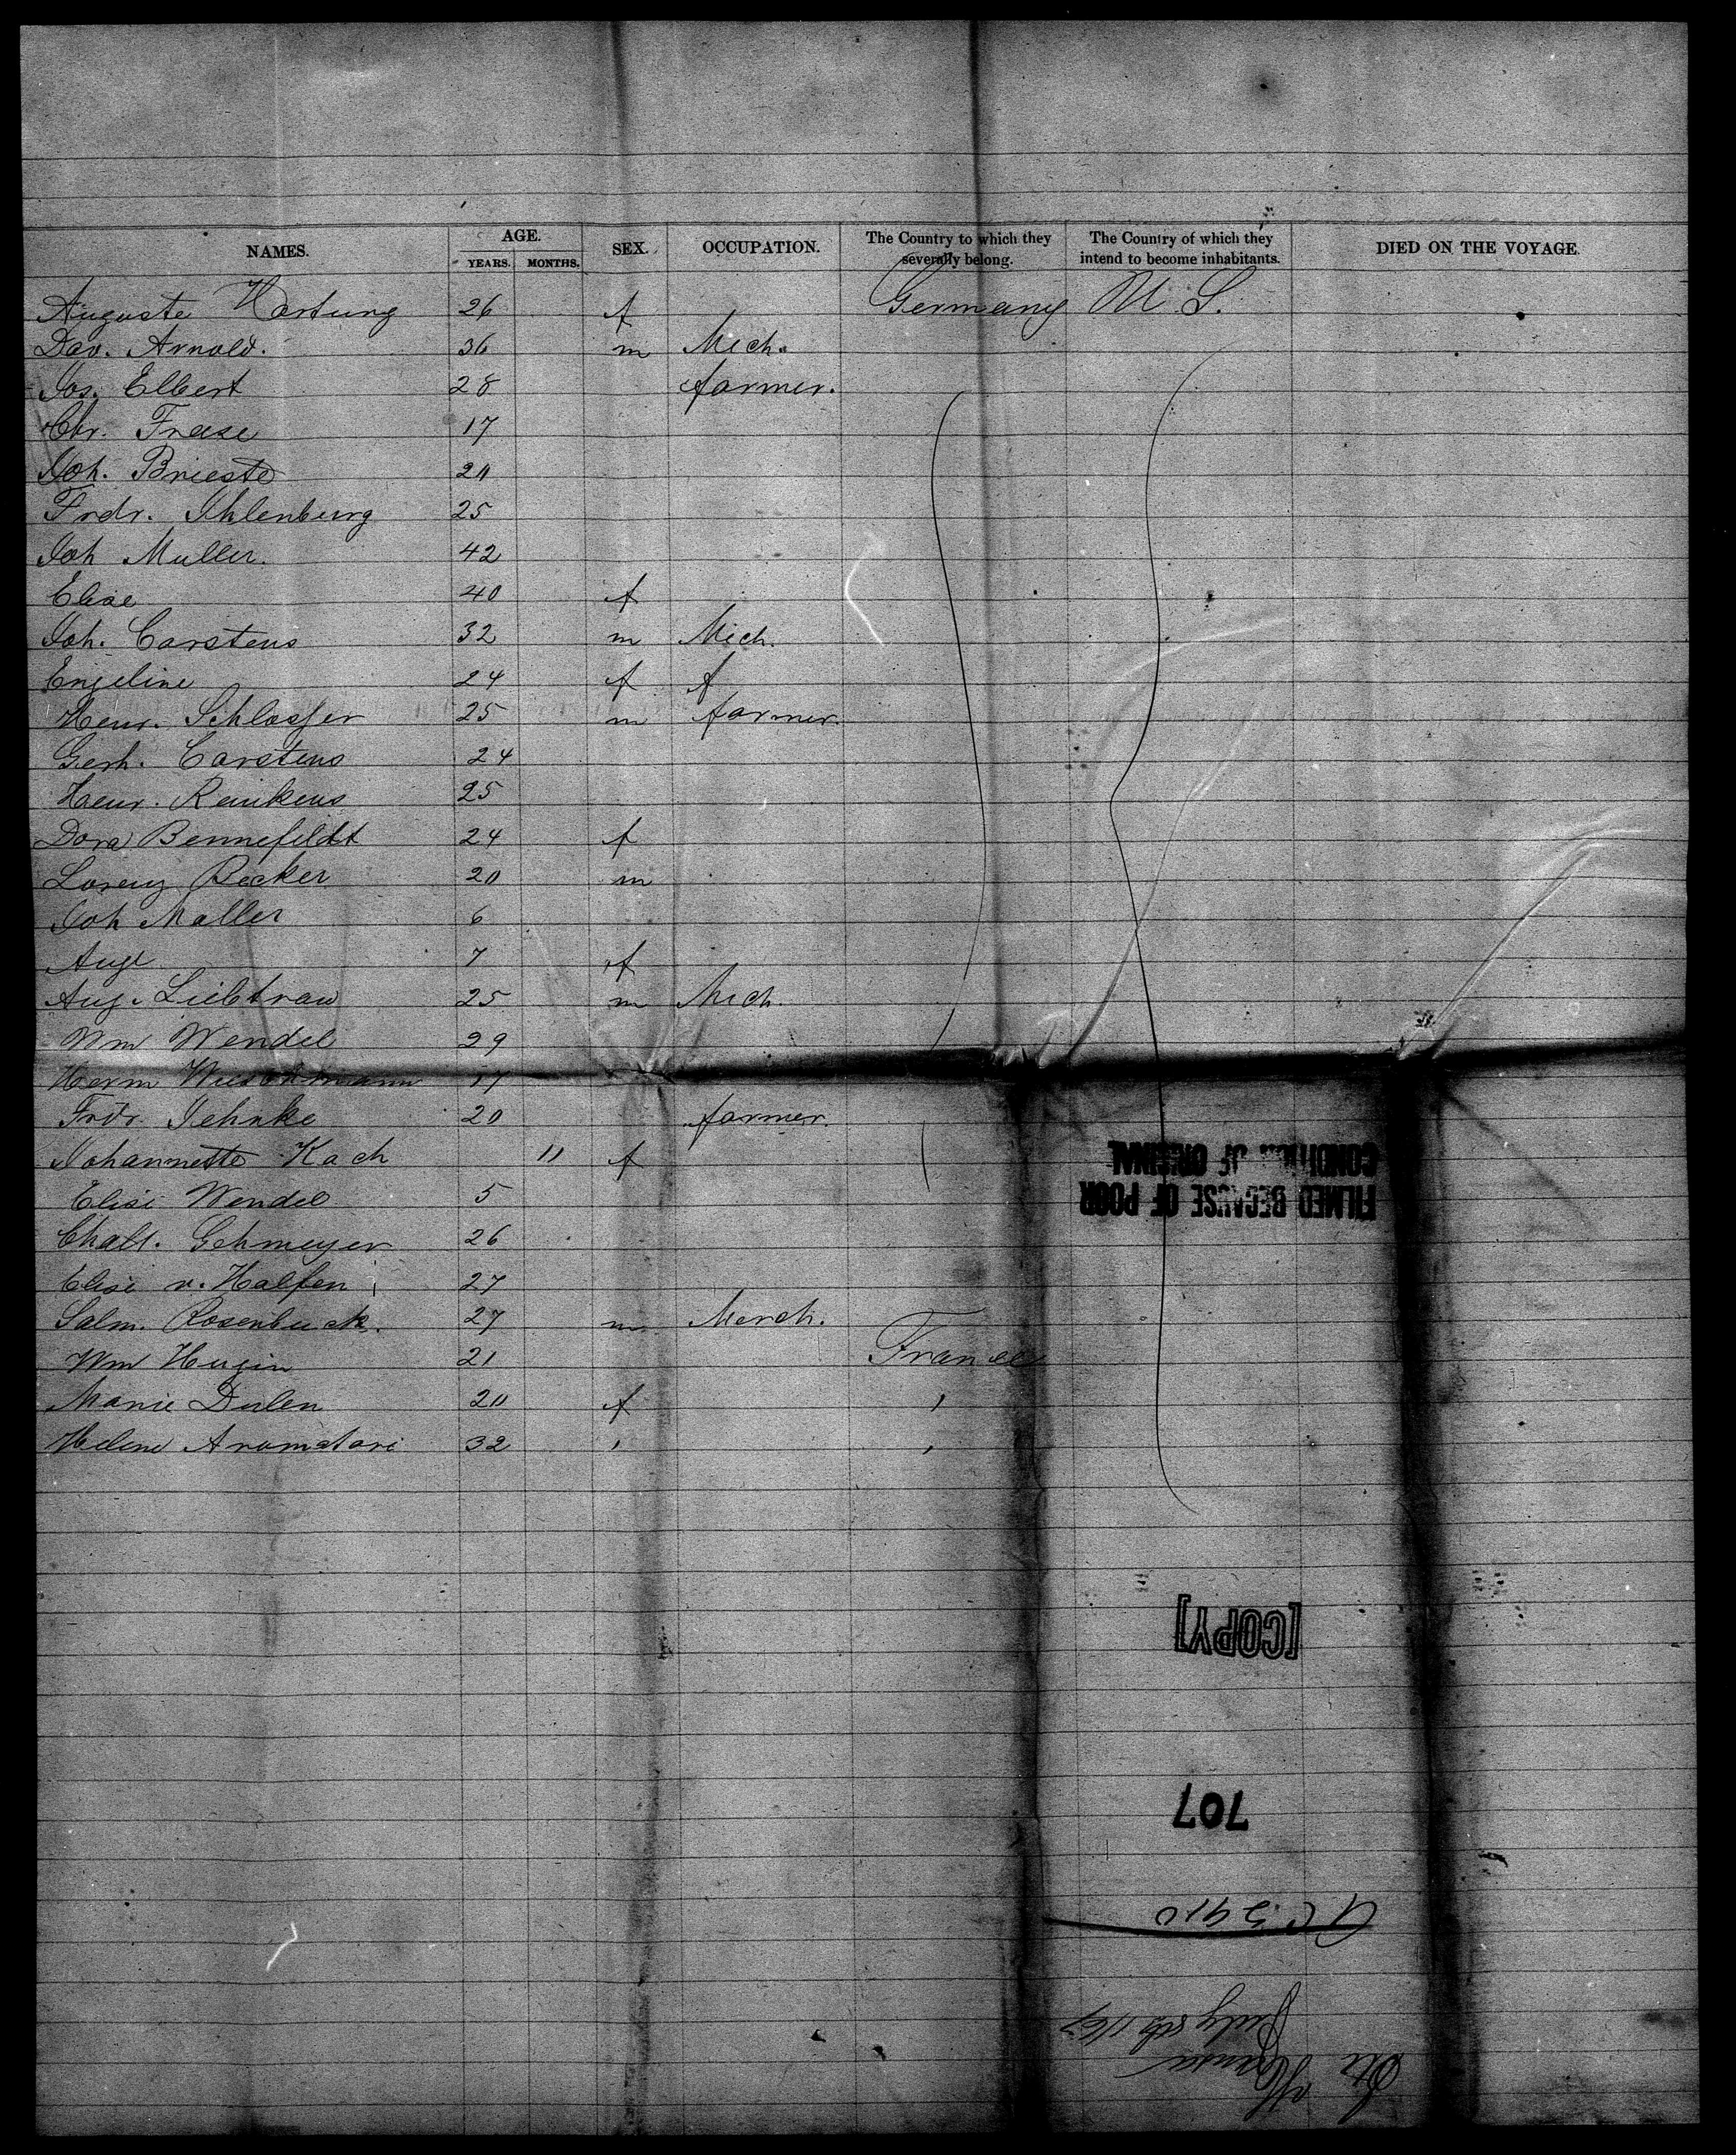 NAMES. AGE. YEARS. MONTHS. SEX. OCCUPATION. The Country to which they severally belong. The Country of which they intend to become inhabitants. DIED ON THE VOYAGE.
Auguste Hartung 26 f Germany U.S.
Dav. Arnold. 36 m Mech.
Jos. Elbert 28 farmer.
Chr. Frese 17
Joh. Brieste 20
Frdr. Ihlenburg 25
Joh Muller. 42
Elise 40 f
Joh. Carstens 32 m Mech.
Engeline 24 f f
Henr. Schlosser 25 m farmer.
Gerh. Carstens 24
Henr. Reinkens 25
Dora Bennefeldt 24 f
Lorenz Becker 20 m
Joh Maller 6
Auge 7 f
Aug. Liebtrau 25 m Mech.
Wm Wendel 29
Herm 17
Frdr. Jehnke 20 farmer.
Johannette Kach 11 f
Elise Wendel 5
Gehmeyer 26
Elise v. Halfen 27
Salm. Rosenbuck. 27 m Merch.
Wm Hugin 21 France
Marie Dulen 20 f "
Helene Aromatari 32 " "
FILMED BECAUSE OF POOR
CONDITION OF ORIGINAL
[COPY]
707
Str Hansa
July 8th